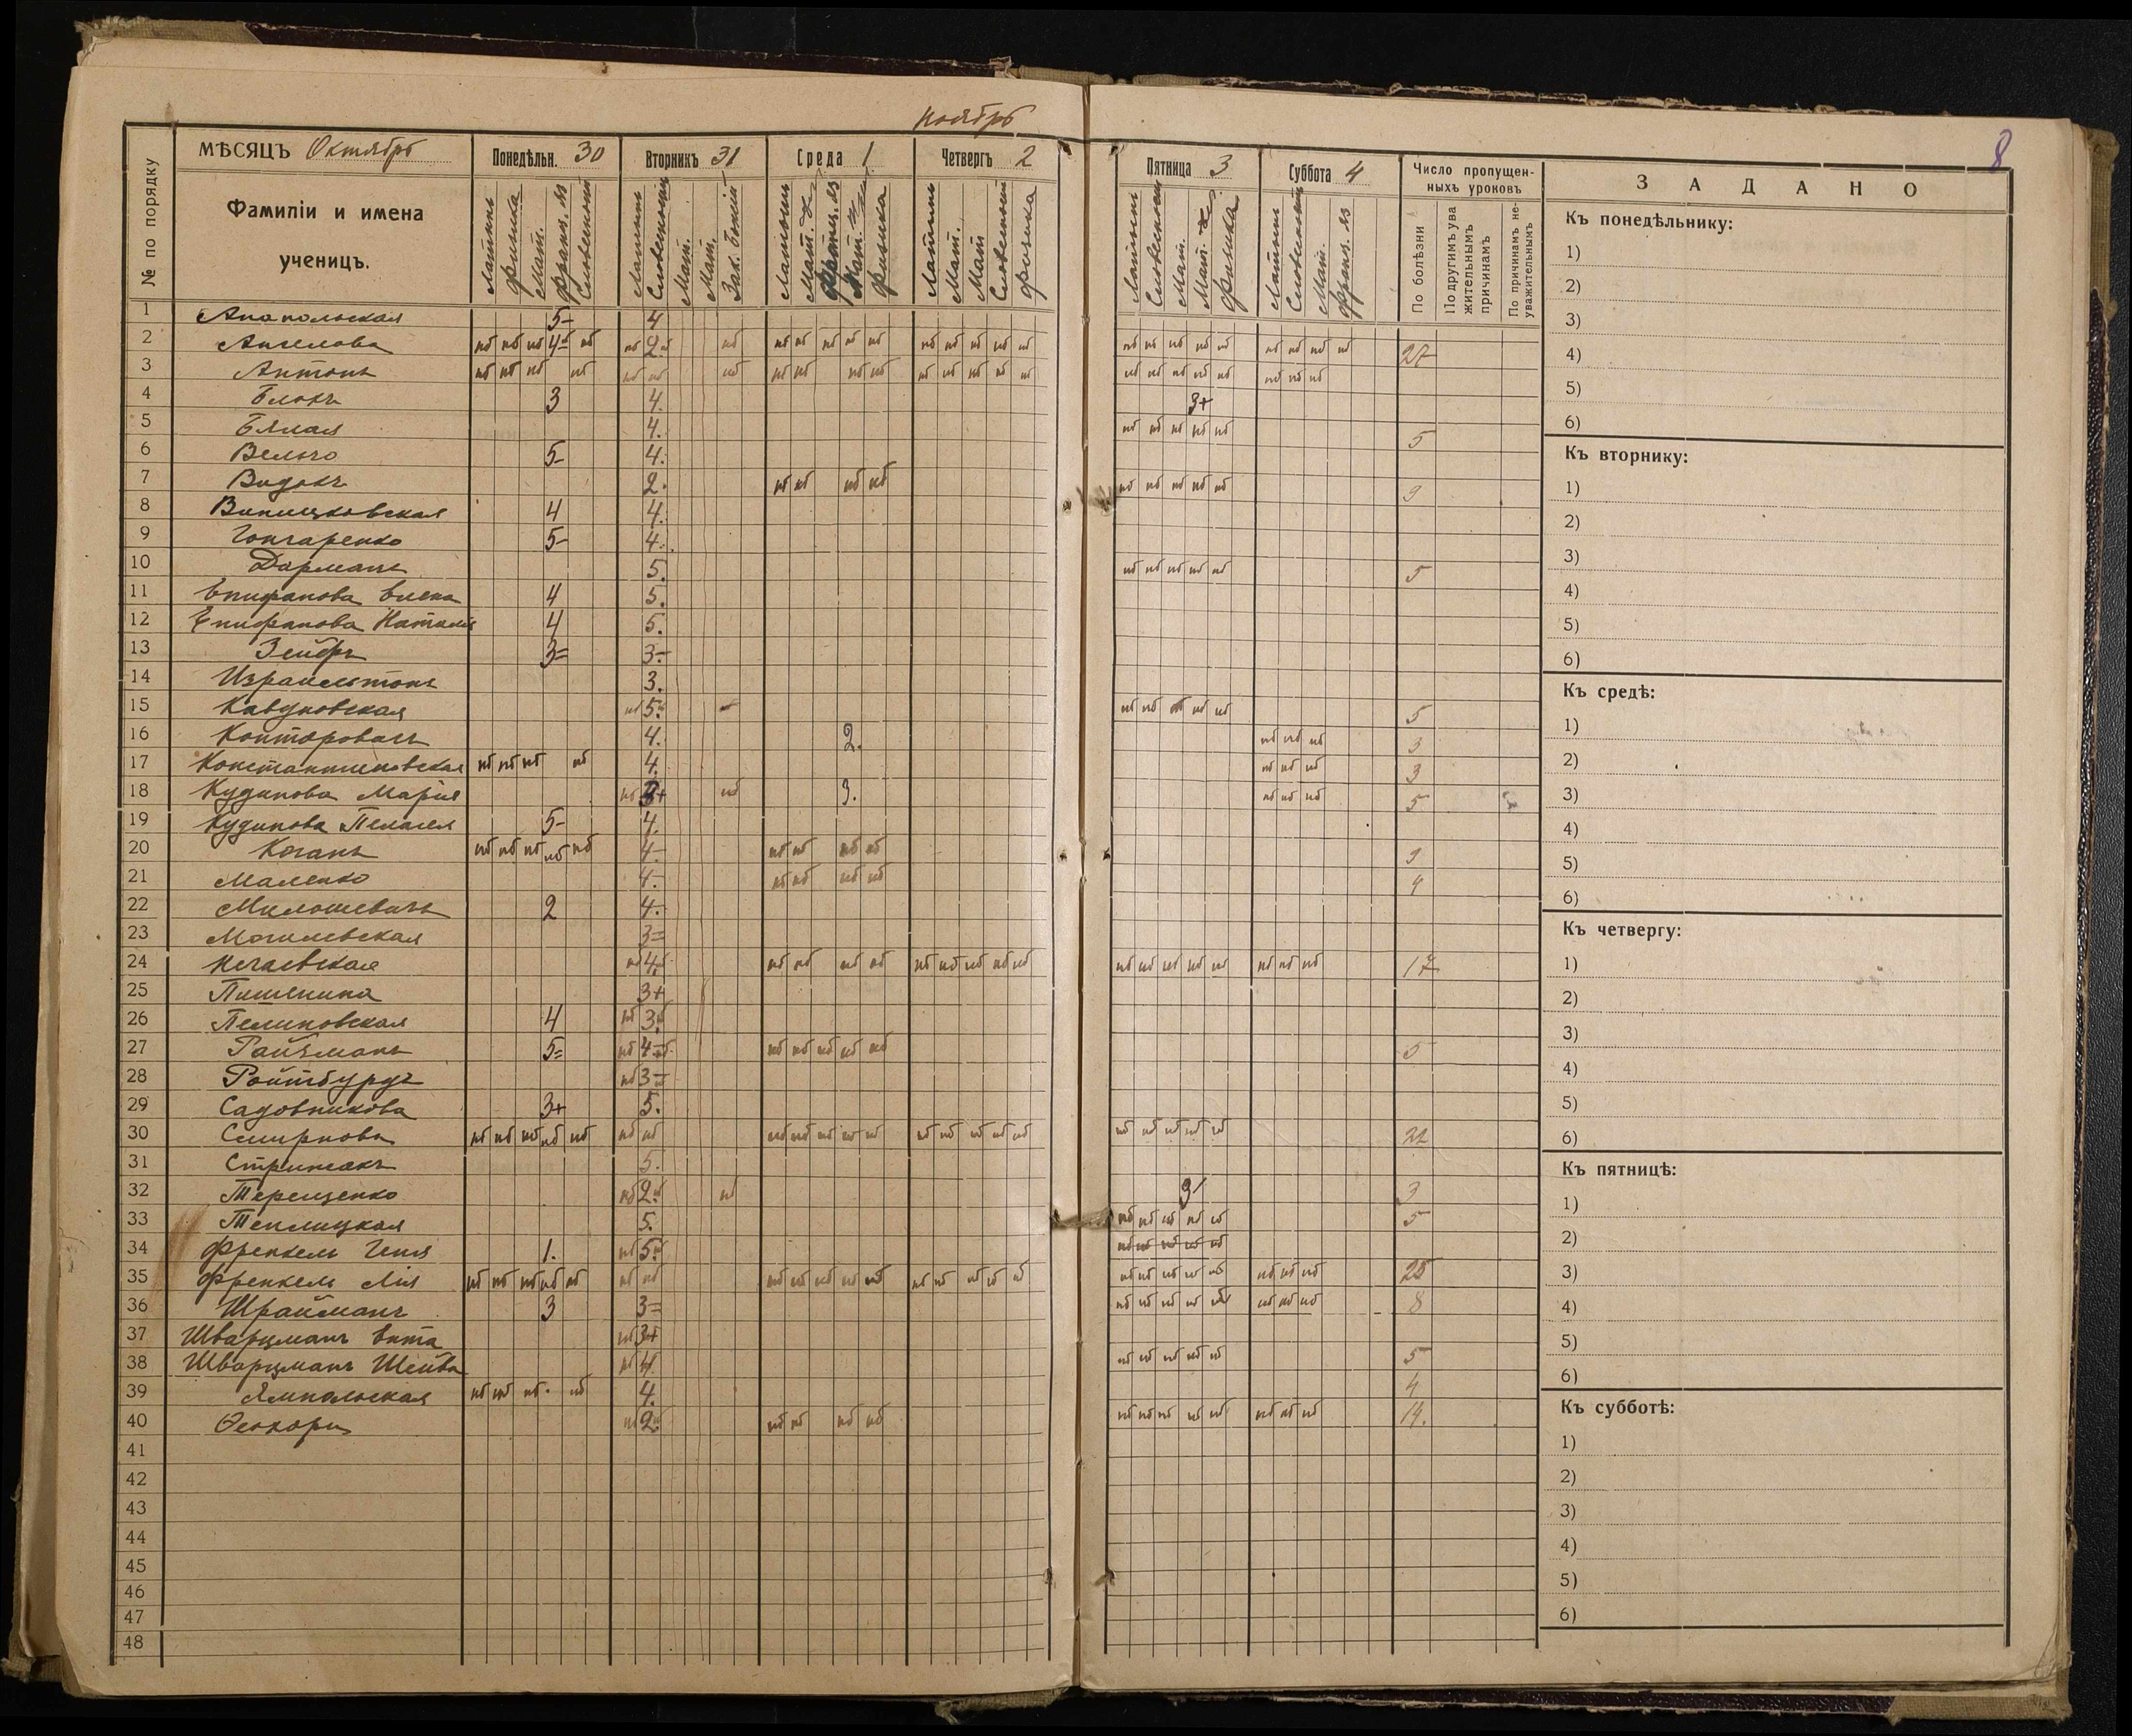 Ноябрь
8
МѢСЯЦЪ Октябрь
Понедѣльн. 30
Вторникъ 31
Среда 1
Четвергъ 2
Пятница 3
Суббота 4
Число пропущенныхъ уроковъ
ЗАДАНО
№ по порядку
Фамиліи и имена
ученицъ.
Латынь Физика Мат. Франц. яз Словесность
Латынь Словесность Мат. Мат. Зак. Божій
Латынь Мат. Франц. яз Мат. Физика
Латынь Мат. Мат Словесность Физика
Латынь Словесность Мат. Мат. Физика
Латынь Словесность Мат. Франц. яз
По болѣзни
По другимъ уважительнымъ причинамъ
По причинамъ неуважительнымъ
1 Анапольская 5- 4
2 Ангелова нб нб нб 4= нб нб 2 нб нб нб нб нб нб нб нб нб нб нб нб нб нб нб нб нб нб нб нб нб 27
3 Антонъ нб нб нб нб нб нб нб нб нб нб нб нб нб нб нб нб нб нб нб нб нб нб нб нб
4 Блокъ 3 4. 3+
5 Бѣлая 4. нб нб нб нб нб 5
6 Вельчо 5- 4.
7 Видокъ 2. нб нб нб нб нб нб нб нб нб 9
8 4 4.
9 Гончаренко 5- 4.
10 Дорманъ 5. нб нб нб нб нб 5
11 Епифанова Елена 4 5.
12 Епифанова Наталія 4 5.
13 Зейфъ 3= 3-
14 Израильтонъ 3.
15 Кавуновская нб 5. нб нб нб нб нб 5
16 Конторовичъ 4. 2. нб нб нб 3
17 Константиновская нб нб нб нб 4. нб нб нб 3
18 Кудинова Марія нб 3+ нб 3. нб нб нб 5
19 Кудинова Пелагея 5- 4.
20 Коганъ нб нб нб нб нб 4- нб нб нб нб 9
21 Маленко 4- нб нб нб нб 4
22 Милошевичъ 2 4-
23 Могилевская 3=
24 Нечаевская нб 4. нб нб нб нб нб нб нб нб нб нб нб нб нб нб нб нб нб 17
25 Пишенина 3+
26 Пелиновская 4 нб 3.
27 Райзманъ 5= нб 4- нб нб нб нб нб нб 5
28 Ройтбурдъ нб 3-
29 Садовникова 3+ 5.
30 Смирнова нб нб нб нб нб нб нб нб нб нб нб нб нб нб нб нб нб нб нб нб нб нб 22
31 Стрижакъ 5.
32 Терещенко нб 2. нб 3- 3
33 Теплицкая 5. нб нб нб нб нб 5
34 Френкель Геня 1. нб 5. нб нб нб нб нб
35 Френкель Лія нб нб нб нб нб нб нб нб нб нб нб нб нб нб нб нб нб нб нб нб нб нб нб нб нб 25
36 Шрайманъ 3 3= нб нб нб нб нб нб нб нб 8
37 Шварцманъ Ента нб 3+
38 Шварцманъ Шейва нб 4 нб нб нб нб нб 5
39 Ямпольская нб нб нб нб 4. 4
40 Ѳеохори нб 2. нб нб нб нб нб нб нб нб нб нб нб нб 14.
41
42
43
44
45
46
47
48
Къ понедѣльнику:
1)
2)
3)
4)
5)
6)
Къ вторнику:
1)
2)
3)
4)
5)
6)
Къ средѣ:
1)
2)
3)
4)
5)
6)
Къ четвергу:
1)
2)
3)
4)
5)
6)
Къ пятницѣ:
1)
2)
3)
4)
5)
6)
Къ субботѣ:
1)
2)
3)
4)
5)
6)